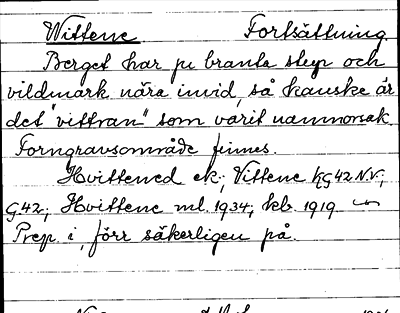 Wittene Fortsättning
Berget har ju branta stup och
vildmark nära invid, så kanske är
det "vittran" som varit namnorsak.
Forngravsområde finnes.
Hvittened ek; Vittene KG42 N.V;
G42; Hvittene ml. 1934; kb. 1919
Prep. i, förr säkerligen på.